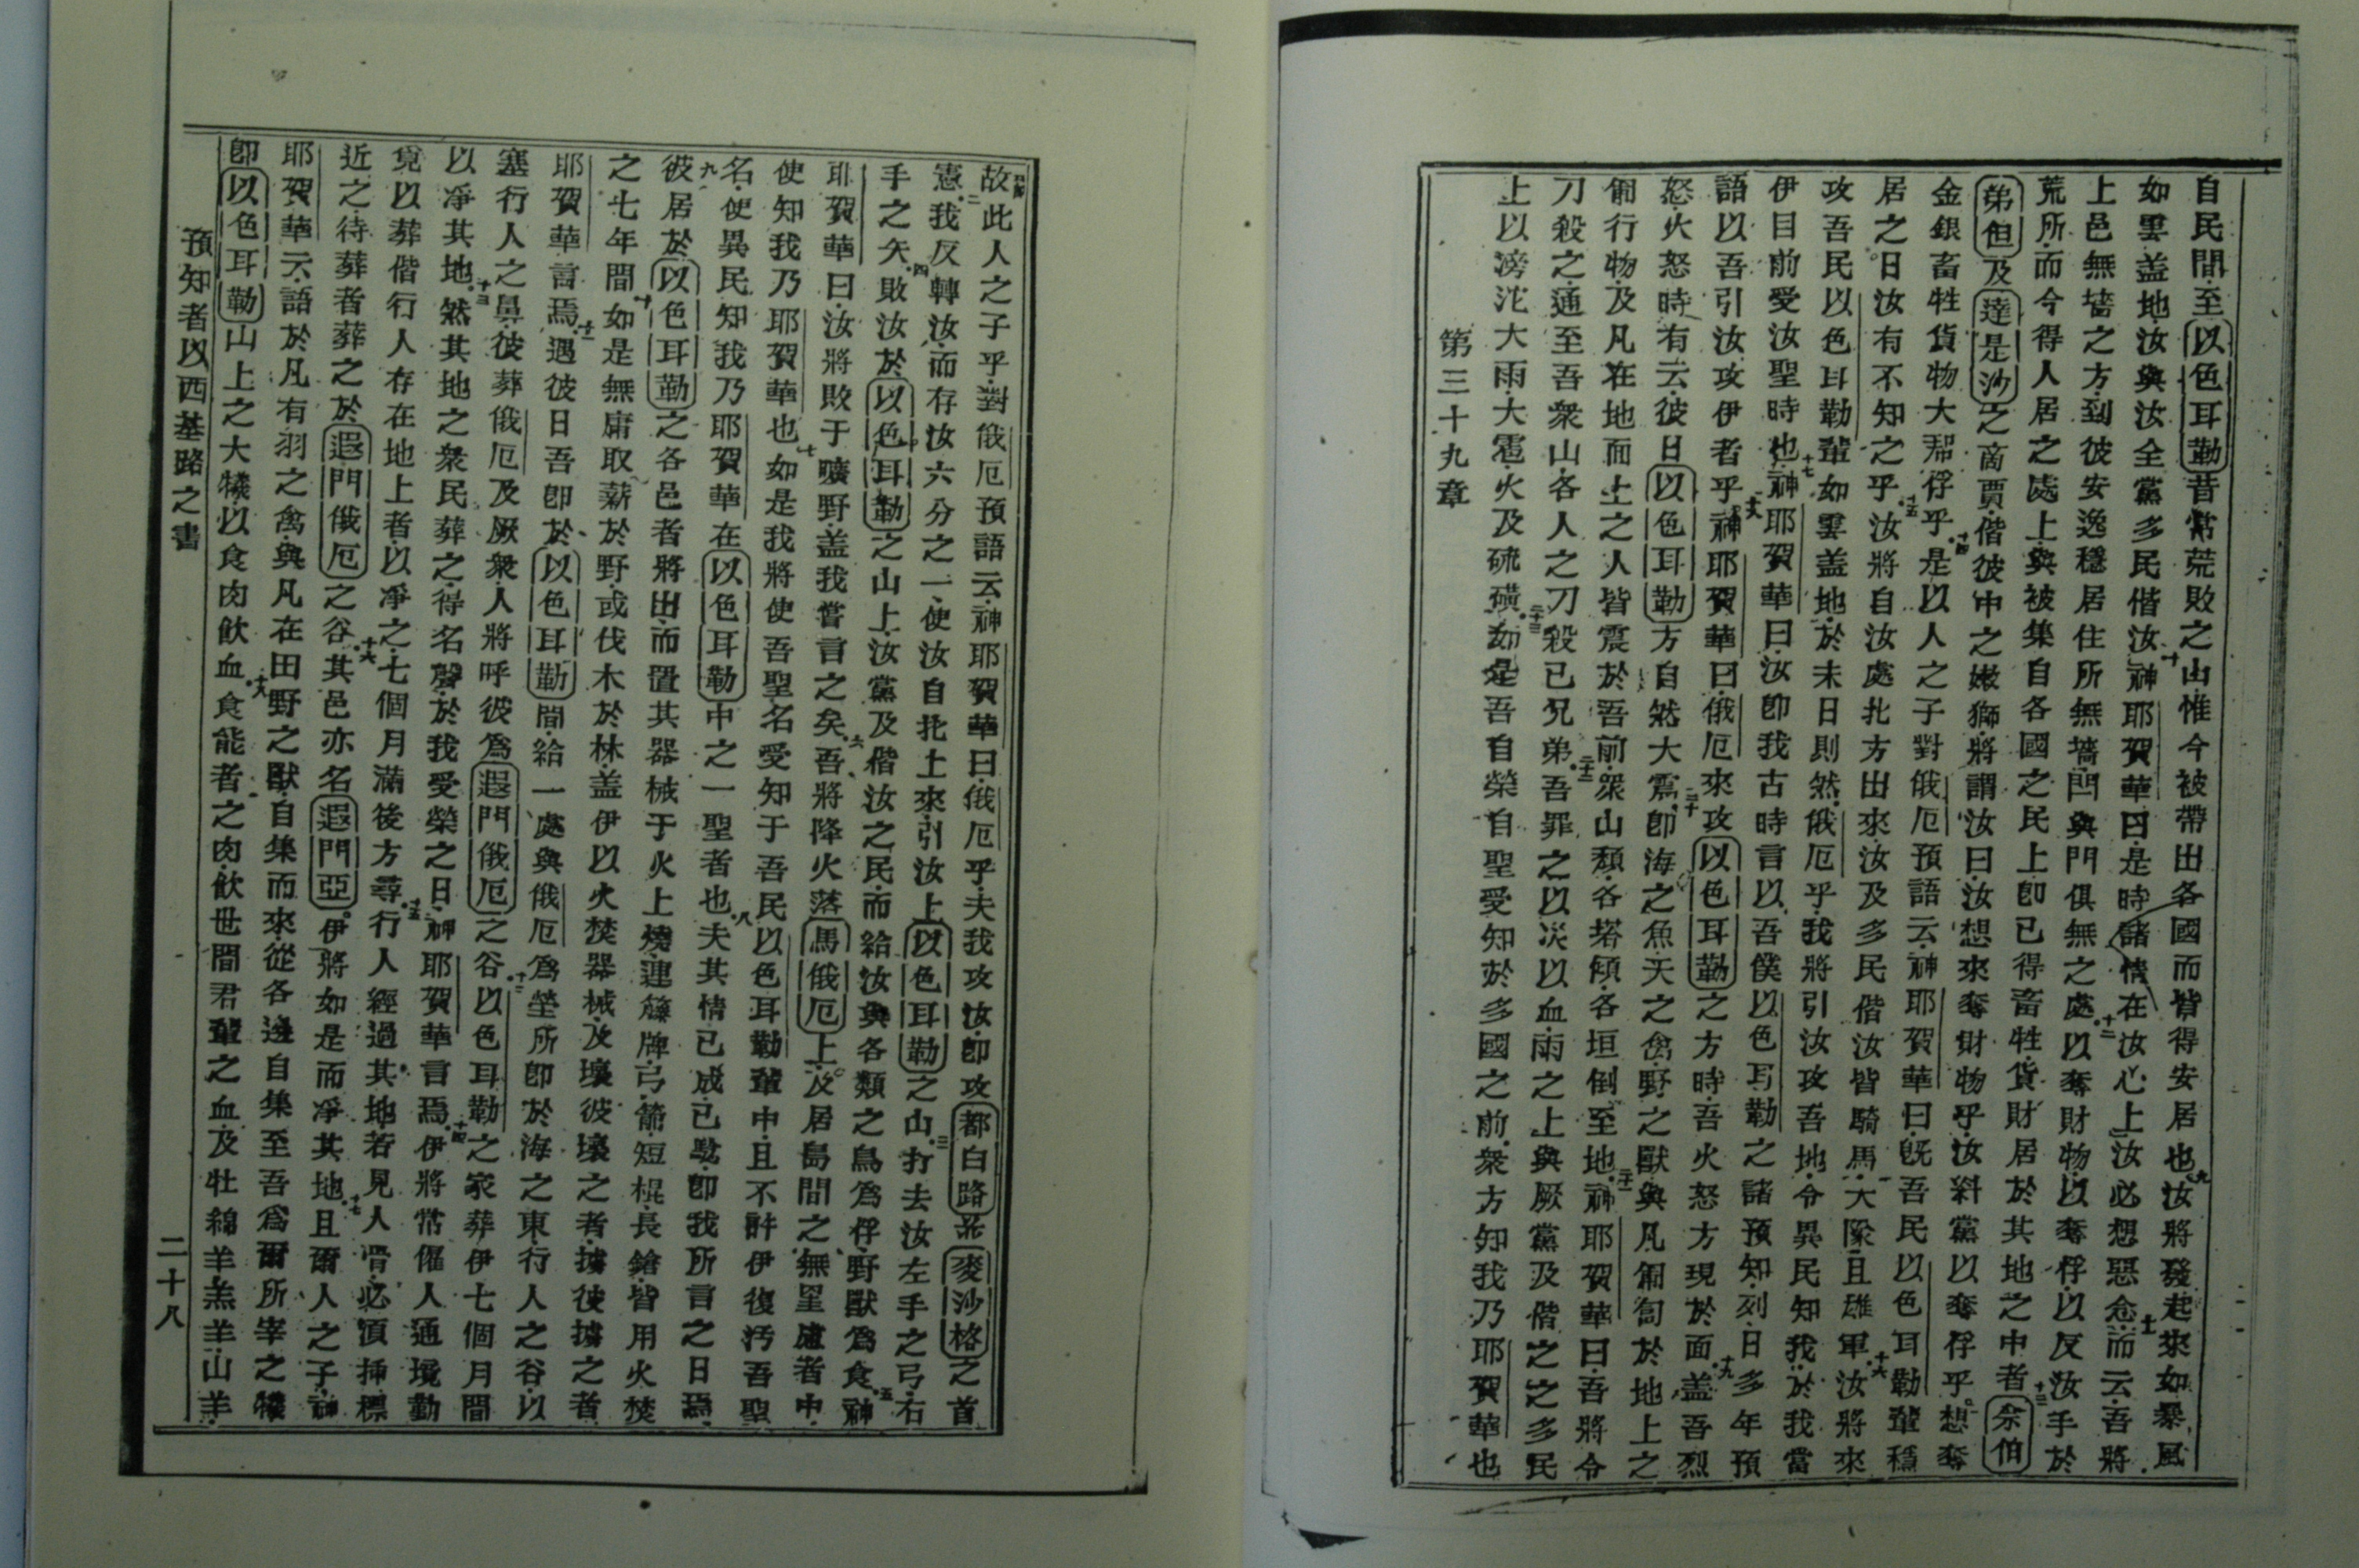 自民間至以色耳勒昔常荒敗之山惟今被帶出各國而皆得安居也九汝將發起來如暴風
如雲盖地汝與汝全黨多民偕汝十神耶賀華曰是時諸情在汝心上汝必想惡念十一而云吾將
上邑無墻之方到彼安逸穩居住所無墻閂與門俱無之處十二以奪財物以奪俘以反汝手於
荒所而今得人居之處上與被集自各國之民上卽已得畜牲貨財居於其地之中者十三佘伯
弟但及達是沙之商賈偕彼中之嫩獅將謂汝曰汝想來奪財物乎汝糾黨以奪俘乎想奪
金銀畜牲貨物大帮俘乎十四是以人之子對俄厄預語云神耶賀華曰旣吾民以色耳勒輩穩
居之日汝有不知之乎十五汝將自汝處北方出來汝及多民偕汝皆騎馬大隊且雄軍十六汝將來
攻吾民以色耳勒輩如雲盖地於未日則然俄厄乎我將引汝攻吾地令異民知我於我當
伊目前受汝聖時也十七神耶賀華曰汝卽我古時言以吾僕以色耳勒之諸預知列日多年預
語以吾引汝攻伊者乎十八神耶賀華曰俄厄來攻以色耳勒之方時吾火怒方現於面十九盖吾烈
怒火怒時有云彼日以色耳勒方自然大震二十卽海之魚天之禽野之獸與凡匍匐於地上之
匍行物及凡在地面上之人皆震於吾前衆山頽各塔傾各垣倒至地二十一神耶賀華曰吾將令
刀殺之通至吾衆山各人之刀殺已兄弟二十二吾罪之以災以血雨之上與厥黨及偕之之多民
上以滂沱大雨大雹火及硫磺二十三如是吾自榮自聖受知於多國之前衆方知我乃耶賀華也
第三十九章
一節故此人之子乎對俄厄預語云神耶賀華曰俄厄乎夫我攻汝卽攻都白路並麥沙格之首
憲二我反轉汝而存汝六分之一使汝自北上來引汝上以色耳勒之山三打去汝左手之弓右
手之矢四敗汝於以色耳勒之山上汝黨及偕汝之民而給汝與各類之鳥爲俘野獸爲食五神
耶賀華曰汝將敗于曠野盖我嘗言之矣六吾將降火落馬俄厄上及居島間之無罣慮者中
使知我乃耶賀華也七如是我將使吾聖名受知于吾民以色耳勒輩中且不許伊復汚吾聖
名使異民知我乃耶賀華在以色耳勒中之一聖者也八夫其情已成已騐卽我所言之日焉
九彼居於以色耳勒之各邑者將出而置其器械于火上燒連籐牌弓箭短棍長鎗皆用火焚
之七年間十如是無庸取薪於野或伐木於林盖伊以火焚器械及壞彼壞之者擄彼擄之者
耶賀華言焉十一遇彼日吾卽於以色耳勒間給一處與俄厄爲塋所卽於海之東行人之谷以
塞行人之鼻彼葬俄厄及厥衆人將呼彼爲遐門俄厄之谷十二以色耳勒之家葬伊七個月間
以淨其地十三然其地之衆民葬之得名聲於我受榮之日神耶賀華言焉十四伊將常僱人通境勤
覓以葬偕行人存在地上者以淨之七個月滿後方尋十五行人經過其地若見人骨必須揷標
近之待葬者葬之於遐門俄厄之谷十六其邑亦名遐門亞伊將如是而淨其地十七且爾人之子神
耶賀華云語於凡有羽之禽與凡在田野之獸自集而來從各邊自集至吾爲爾所宰之犧
卽以色耳勒山上之大犧以食肉飲血十八食能者之肉飲世間君輩之血及牡綿羊羔羊山羊
預知者以西基路之書
二十八